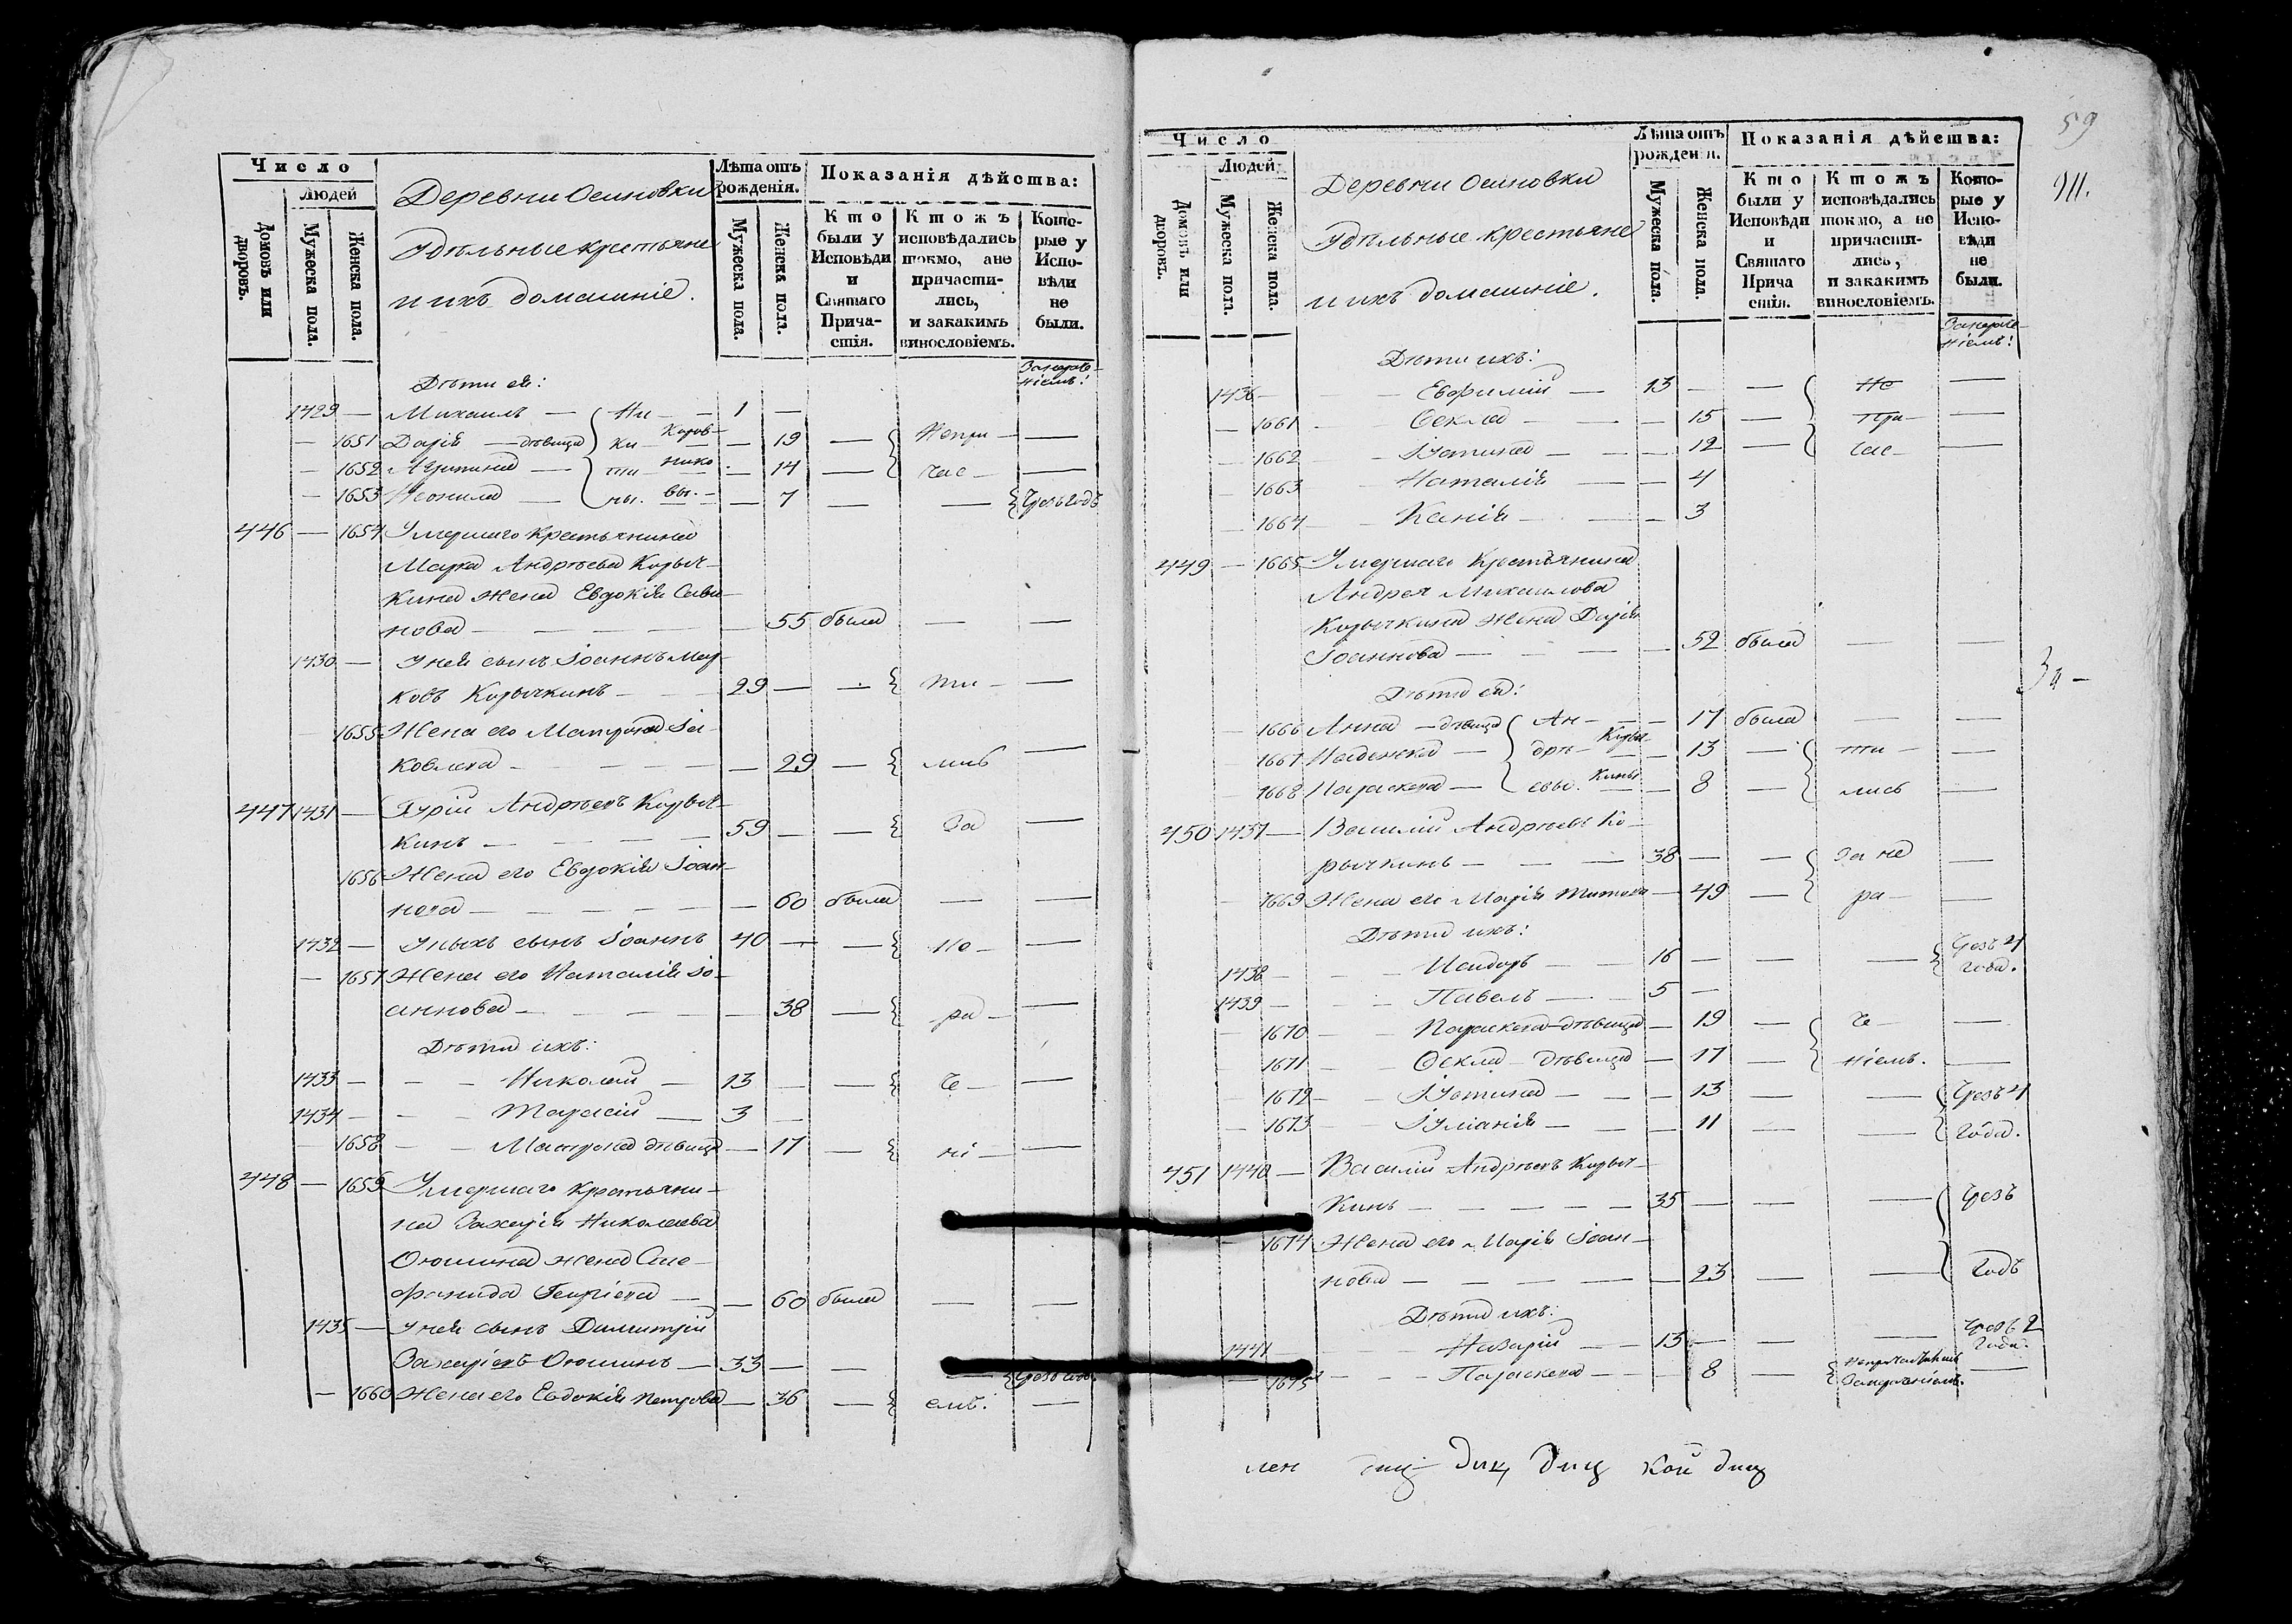 Число
Людей
Домовъ или дворовъ.
Мужеска пола.
Женска пола.
Деревни Осиновки
Удѣльные крестьяне
и ихъ домашніе.
Лѣта отъ рожденія.
Мужеска пола.
Женска пола.
Показанія дѣйства:
Кто были у Исповѣди и Святаго Прича-стія.
Ктожъ исповѣдались токмо, а не причасти-лись, и закакимъ винословіемъ.
Кото-рые у Испо-вѣди не были.
Занераче-ніемъ:
Дѣти ея:
1429 — Михаилъ — Ни — — 1 —
— 1651 Дарія — дѣвица ки — Коров — — 19 — Непри — —
— 1652 Агрипина — ти — нико — 14 — час — —
— 1653 Неонила — ны. вы. — — 7 — — Чрезъ годъ
446 — 1654 Умершаго крестьянина
Марка Андреева Корыч-
кина жена Евдокія Сави-
нова — — — — 55 была — —
1430 — У ней сынъ Іоаннъ Мар-
ковъ Корычкинъ — 29 — — ти — —
1655 Жена его Матрона Іа-
ковлева — — — — 29 — лись —
447 1431 — Гурій Андреевъ Корыч-
кинъ — — — — 59 — — За —
1656 Жена его Евдокія Іоан-
нова — — — — — 60 была — —
1432 — У ныхъ сынъ Іоаннъ 40 — — не — —
— 1657 Жена его Наталія Іо-
аннова — — — — 38 — ра — —
Дѣти ихъ:
1433 — — — Николай — 13 — — че — —
1434 — — — Тарасій — 3 —
— 1658 — — Матрона дѣвица — 17 — ні — —
448 — 1659 Умершаго крестьяни-
на Захарія Николаева
Оюшина жена Сте-
фанида Георгіева — — 60 была — —
1435 — У ней сынъ Димитрій
Захаріевъ Оюшинъ — 33 — — — Чрезъ годъ.
— 1660 Жена его Евдокія Петрова — 36 — емъ. —
59
911.
Число
Людей
Домовъ или дворовъ.
Мужеска пола.
Женска пола.
Деревни Осиновки
Удѣльные крестьяне
и ихъ домашніе.
Лѣта отъ рожденія.
Мужеска пола.
Женска пола.
Показанія дѣйства:
Кто были у Исповѣди и Святаго Прича стія.
Ктожъ исповѣдались токмо, а не причасти-лись, и закакимъ винословіемъ.
Кото-рые у Испо-вѣди не были.
Занераче-ніемъ:
Дѣти ихъ:
1436 — — — Евфимій — 13 — — Не —
— 1661 — Ѳекла — — — 15 — При — —
— 1662 — Іустина — — — 12 — час — —
— 1663 — Наталія — — 4
— 1664 — — Ксенія — — — 3
449 — 1665 Умершаго Крестьянина
Андрея Михаилова
Корычкина жена Дарія
Іоаннова — — — — 52 была — —
За —
Дѣти ея:
— 1666 Анна — дѣвица Ан — — — 17 была — —
1667 Надежда — дре — Корыч — — 13 — ти — —
— 1668 Параскева — евы. кины — — 8 — лись —
450 1437 — Василій Андреевъ Ко-
рычкинъ — — — 38 — — За не —
— 1669 Жена его Марія Титова — 49 — ра — —
Дѣти ихъ:
1438 — — — Исидоръ — — 16 — — — Чрезъ 4 года.
1439 — — — Павелъ — — 5 —
— 1670 — — Параскева — дѣвица — 19 — че — —
1671 — Ѳекла — дѣвица — 17 — ніемъ. —
1672 — — Іустина — — — 13 — — Чрезъ 4
— 1673 — — Іуліанія — — — 11 — — года.
451 1440 — Василій Андреевъ Корыч-
кинъ — — — — — 35 — — — Чрезъ
— 1674 Жена его Марія Іоан-
нова — — — — — 23 — — годъ
Дѣти ихъ:
1441 — — Назарій — — 13 — — — Чрезъ 2 года.
— 1675 — — — Параскева — — — 8 —
лен диц дищ дищ кой дищ